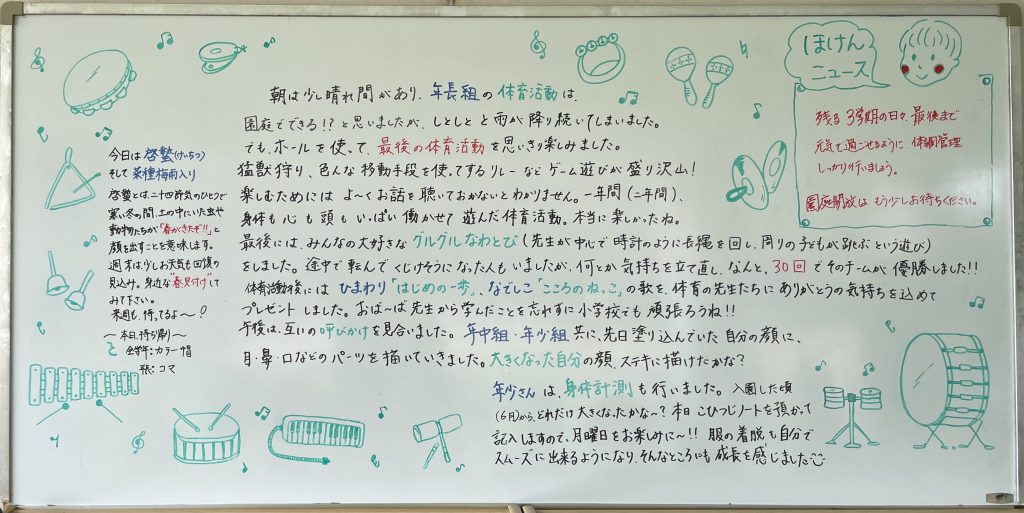 今日は啓蟄(けいちつ)
そして菜種梅雨入り
啓蟄とは、二十四節気のひとつで
寒い冬の間、土の中にいた虫や
動物たちが「春がきたぞ!!」と
顔を出すことを意味します。
週末は少しお天気も回復の
見込み。身近な"春見付け"して
みて下さい。
来週も、待ってるよ〜!
〜本日、持ち帰り〜
全学年:カラー帽
長:コマ
朝は少し晴れ間があり、年長組の体育活動は、
園庭でできる!?と思いましたが、しとしとと雨が降り続いてしまいました。
でも、ホールを使って、最後の体育活動を思いきり楽しみました。
猛獣狩り、色んな移動手段を使ってするリレーなどゲーム遊びが盛り沢山!
楽しむためにはよ〜くお話を聴いておかないとわかりません。一年間(二年間)、
身体も心も頭もいっぱい働かせて遊んだ体育活動。本当に楽しかったね。
最後には、みんなの大好きなグルグルなわとび(先生が中心で時計のように長縄を回し、周りの子どもが跳ぶという遊び)
をしました。途中で転んでくじけそうになった人もいましたが、何とか気持ちを立て直し、なんと、30回でそのチームが優勝しました!!
体育活動後にはひまわり「はじめの一歩」、なでしこ「こころのねっこ」の歌を、体育の先生たちにありがとうの気持ちを込めて
プレゼントしました。おば〜ば先生から学んだことを忘れずに小学校でも頑張ろうね!!
午後は、互いの呼びかけを見合いました。年中組・年少組共に、先日塗り込んでいた自分の顔に、
目・鼻・口などのパーツを描いていきました。大きくなった自分の顔、ステキに描けたかな?
年少さんは、身体計測も行いました。入園した頃
(6月)から、どれだけ大きくなったかな〜?本日こひつじノートを預かって
記入しますので、月曜日をお楽しみに〜!!服の着脱も自分で
スムーズに出来るようになり、そんなところにも成長を感じました
ほけん
ニュース
残る3学期の日々、最後まで
元気で過ごせるように体調管理
しっかり行いましょう。
園庭開放はもう少しお待ちください。